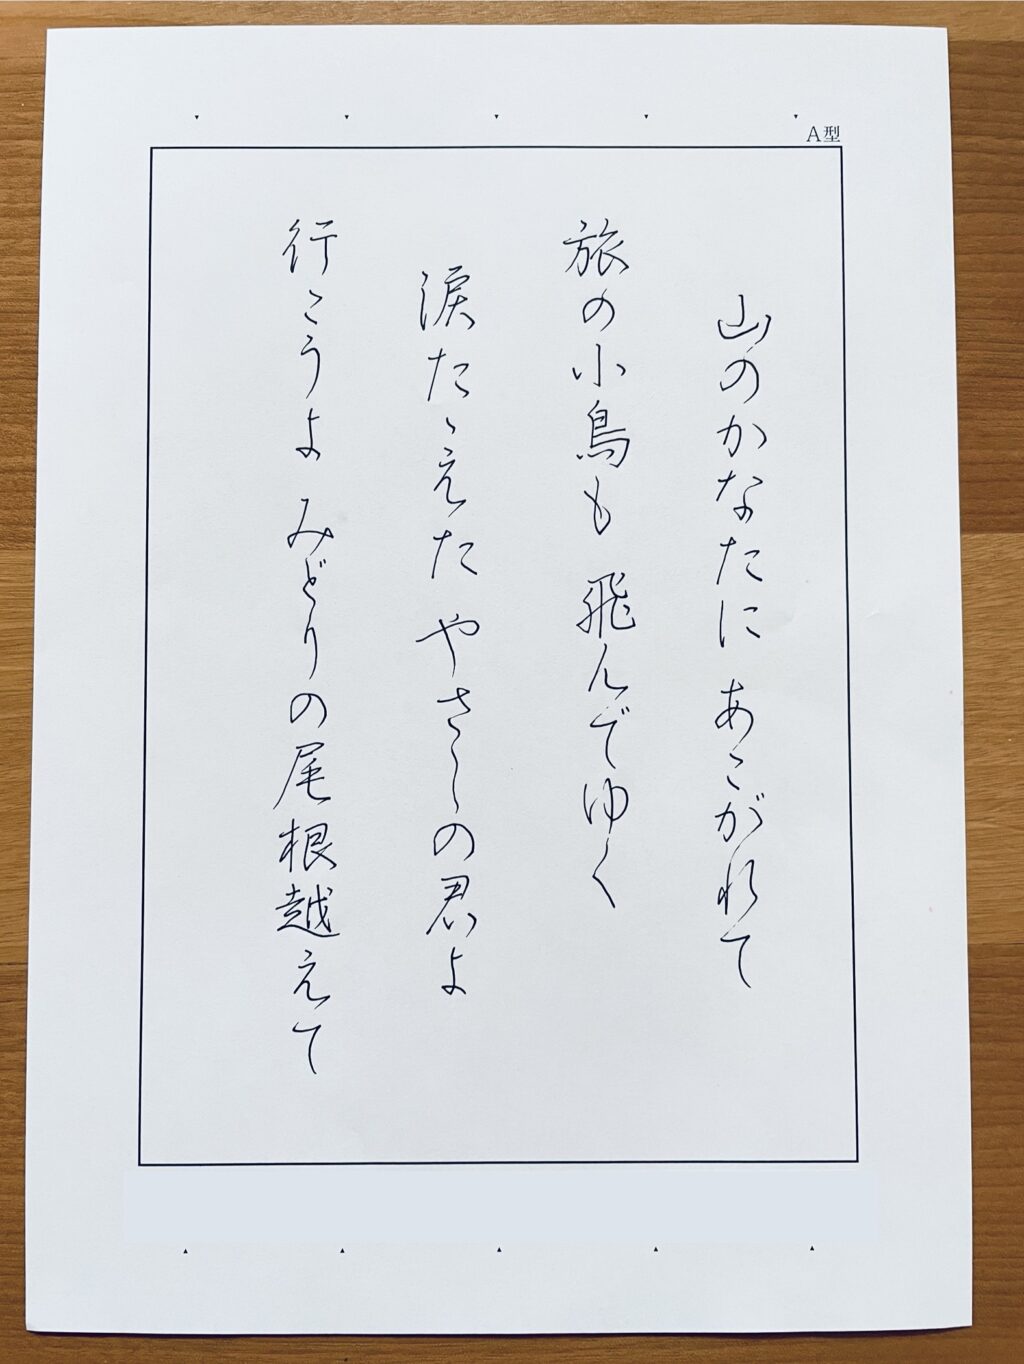 A型
山のかなたに あこがれて
旅の小鳥も 飛んでゆく
涙たゝえた やさしの君よ
行こうよ みどりの尾根越えて